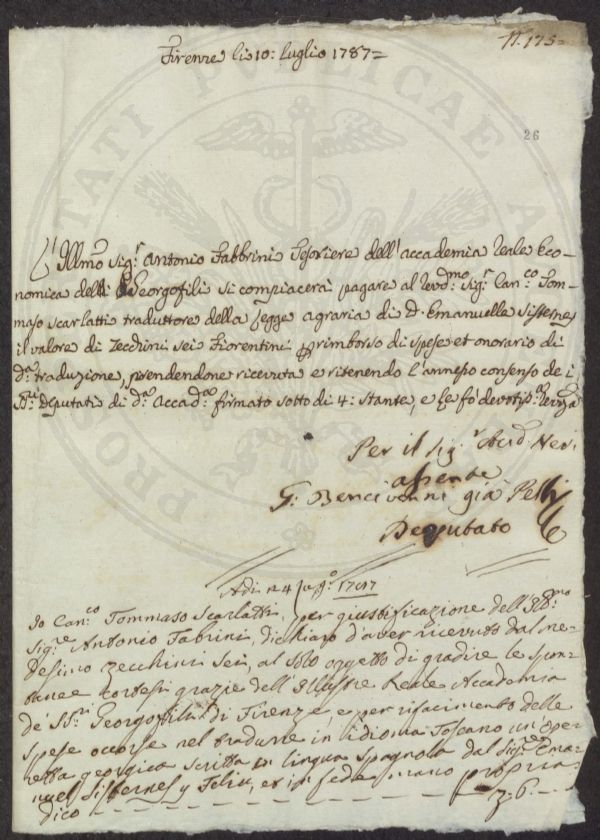 N. 175=
Firenze li 10: Luglio 1787=
26
Illmo Sig.r Antonio Fabbrini Tesoriere dell'accademia Reale Eco-
nomica delli Georgofili si compiacerà pagare al Revd.mo Sig.r Can.co Tom-
maso Scarlatti traduttore della Legge agraria di D. Emanuelle Sisternes
il valore di Zecchini sei Fiorentini rimborso di spese et onorario di
d.a traduzione, prendendone ricevuta e ritenendo l'annesso consenso de i
SS.ri Deputati di d.a Accad.a firmato sotto di 4: Stante, e le fò devotis.a
Per il Sig.r Aud. Neri
assente
G. Bencivenni già Pelli
Deputato
Adi 4
Io Can.co Tommaso Scarlatti, per giustificazione dell'Ill.mo
Sig.re Antonio Fabrini, dichiaro d'aver ricevuto dal me-
desimo zecchini sei, al solo oggetto di gradire le spon-
tanee cortesi grazie dell'Illustre Reale Accademia
de' SS.ri Georgofili di Firenze, e per rifacimento delle
spese occorse nel tradurre in idioma Toscano un'ope-
retta georgica scritta in lingua spagnola dal Sig.re Ema-
nuel Sisternes y Feliu, et in fede mano propria
dico — — — — — — — — — z. 6. —
PUBLICAE
PROS